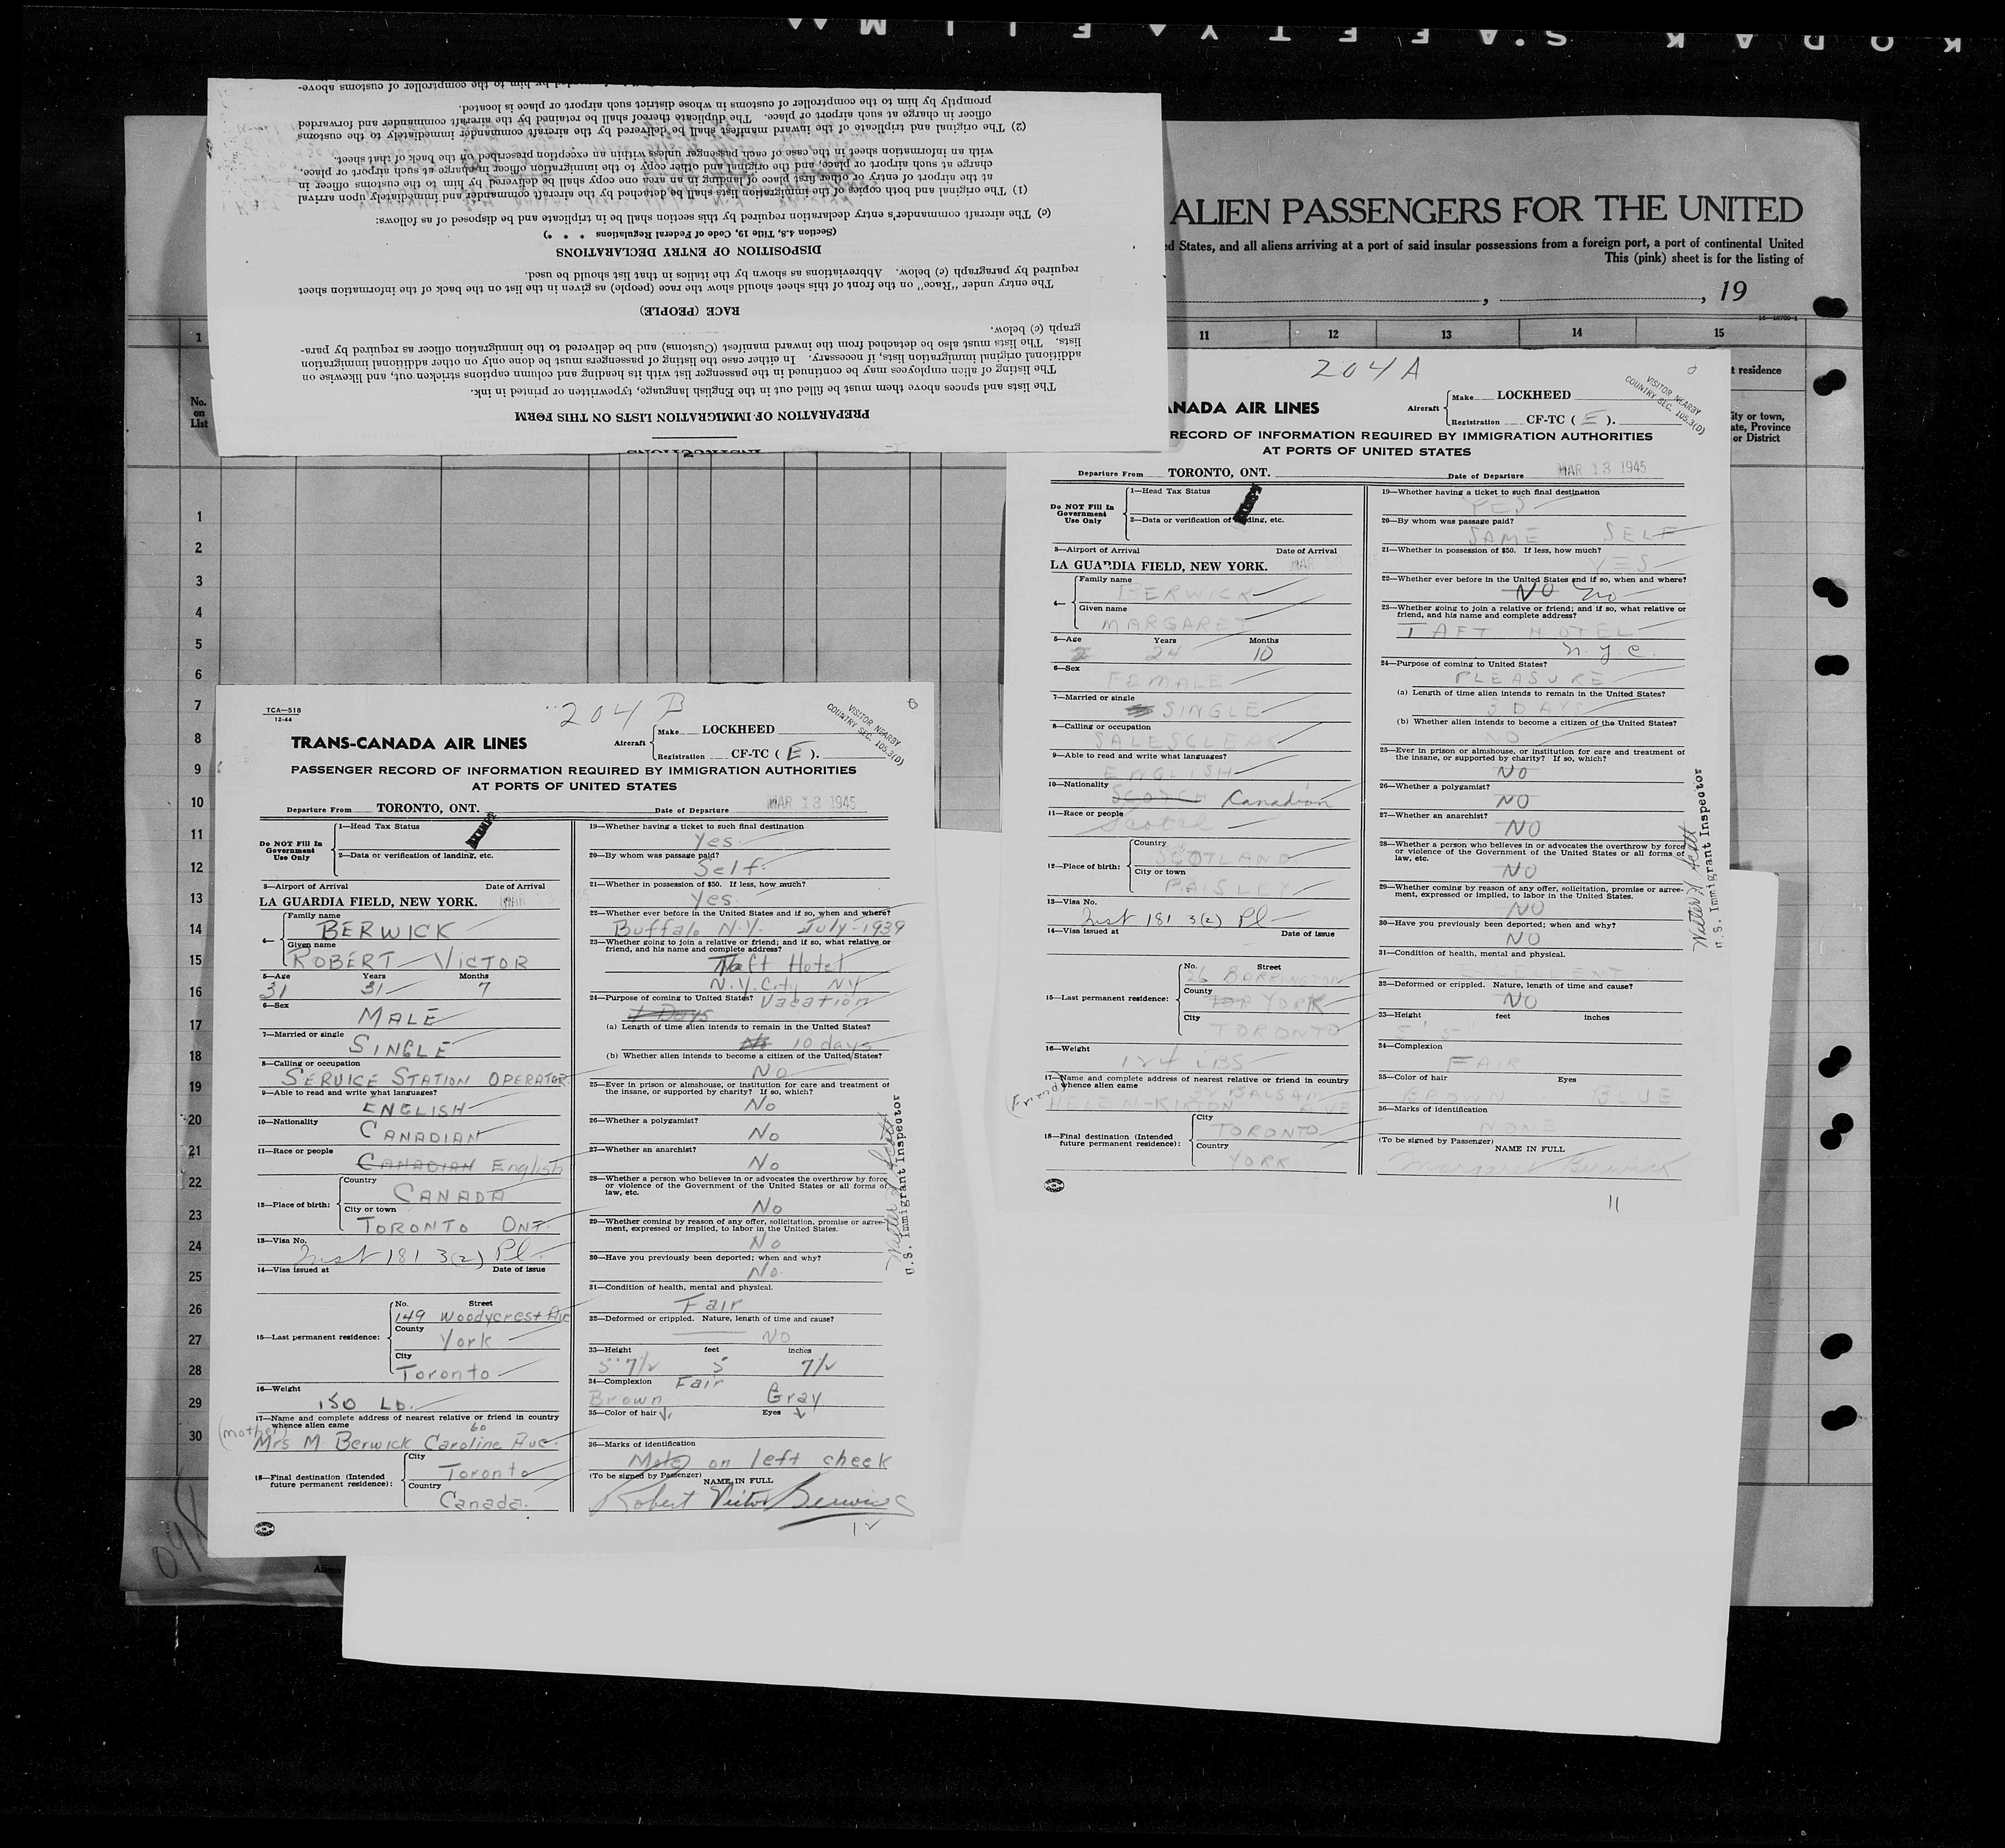 KODAK S.A.F.E.T.Y. FILM
PREPARATION OF IMMIGRATION LISTS ON THIS FORM
The lists and spaces above them must be filled out in the English language, typewritten or printed in ink.
The listing of alien employees may be continued in the passenger list with its heading and column captions stricken out, and likewise on
additional original immigration lists, if necessary. In either case the listing of passengers must be done only on other additional immigration
lists. The lists must also be detached from the inward manifest (Customs) and be delivered to the immigration officer as required by para-
graph (c) below.
RACE (PEOPLE)
The entry under "Race" on the front of this sheet should show the race (people) as given in the list on the back of the information sheet
required by paragraph (c) below. Abbreviations as shown by the italics in that list should be used.
DISPOSITION OF ENTRY DECLARATIONS
(Section 4.8, Title 19, Code of Federal Regulations * * *)
(c) The aircraft commander's entry declaration required by this section shall be in triplicate and be disposed of as follows:
(1) The original and both copies of the immigration lists shall be detached by the aircraft commander and immediately upon arrival
at the airport of entry or other first place of landing in an area one copy shall be delivered by him to the customs officer in
charge at such airport or place, and the original and other copy to the immigration officer in charge at such airport or place,
with an information sheet in the case of each passenger unless within an exception prescribed on the back of that sheet.
(2) The original and triplicate of the inward manifest shall be delivered by the aircraft commander immediately to the customs
officer in charge at such airport or place. The duplicate thereof shall be retained by the aircraft commander and forwarded
promptly by him to the comptroller of customs in whose district such airport or place is located.
by him to the comptroller of customs above-
ALIEN PASSENGERS FOR THE UNITED
ed States, and all aliens arriving at a port of said insular possessions from a foreign port, a port of continental United
This (pink) sheet is for the listing of
, , 19
1 11 12 13 14 15
No.
on
List
t residence
ity or town,
ate, Province
or District
1
2
3
4
5
6
7
8
9
10
11
12
13
14
15
16
17
18
19
20
21
22
23
24
25
26
27
28
29
30
204 A
VISITOR NEARBY
COUNTRY SEC. 105.3(D)
NADA AIR LINES
Aircraft
Make LOCKHEED
Registration CF-TC ( E ).
RECORD OF INFORMATION REQUIRED BY IMMIGRATION AUTHORITIES
AT PORTS OF UNITED STATES
Departure From TORONTO, ONT. Date of Departure MAR 13 1945
Do NOT Fill In
Government
Use Only
1—Head Tax Status
2—Data or verification of landing, etc.
3—Airport of Arrival Date of Arrival
LA GUARDIA FIELD, NEW YORK. MAR
4—
Family name
BERWICK
Given name
MARGARET
5—Age Years Months
24 10
6—Sex
FEMALE
7—Married or single
SINGLE
8—Calling or occupation
SALESCLERK
9—Able to read and write what languages?
ENGLISH
10—Nationality
SCOTCH Canadian
11—Race or people
Scotch
12—Place of birth:
Country
SCOTLAND
City or town
PAISLEY
13—Visa No.
Inst 181 3(2) Pl
14—Visa issued at Date of issue
15—Last permanent residence:
No. Street
26 BARRINGTON
County
YORK
City
TORONTO
16—Weight
124 LBS
17—Name and complete address of nearest relative or friend in country
whence alien came
(Friend)
BALSAM
HELEN AVE
18—Final destination (Intended
future permanent residence):
City
TORONTO
Country
YORK
19—Whether having a ticket to such final destination
YES
20—By whom was passage paid?
SAME SELF
21—Whether in possession of $50. If less, how much?
YES
22—Whether ever before in the United States and if so, when and where?
NO no
23—Whether going to join a relative or friend; and if so, what relative or
friend, and his name and complete address?
TAFT HOTEL
N.Y.C.
24—Purpose of coming to United States?
PLEASURE
(a) Length of time alien intends to remain in the United States?
3 DAYS
(b) Whether alien intends to become a citizen of the United States?
NO
25—Ever in prison or almshouse, or institution for care and treatment of
the insane, or supported by charity? If so, which?
NO
26—Whether a polygamist?
NO
27—Whether an anarchist?
NO
28—Whether a person who believes in or advocates the overthrow by force
or violence of the Government of the United States or all forms of
law, etc.
NO
29—Whether coming by reason of any offer, solicitation, promise or agree-
ment, expressed or implied, to labor in the United States.
NO
30—Have you previously been deported; when and why?
NO
31—Condition of health, mental and physical.
EXCELLENT
32—Deformed or crippled. Nature, length of time and cause?
NO
33—Height feet inches
5' 5"
34—Complexion
FAIR
35—Color of hair Eyes
BROWN BLUE
36—Marks of identification
NONE
(To be signed by Passenger) NAME IN FULL
Margaret Berwick
11
Walter J Scott
U.S. Immigrant Inspector
TCA—518
12-44
204 B
VISITOR NEARBY
COUNTRY SEC. 105.3(D)
TRANS-CANADA AIR LINES
Aircraft
Make LOCKHEED
Registration CF-TC ( E ).
PASSENGER RECORD OF INFORMATION REQUIRED BY IMMIGRATION AUTHORITIES
AT PORTS OF UNITED STATES
Departure From TORONTO, ONT. Date of Departure MAR 13 1945
Do NOT Fill In
Government
Use Only
1—Head Tax Status
EXEMPT
2—Data or verification of landing, etc.
3—Airport of Arrival Date of Arrival
LA GUARDIA FIELD, NEW YORK. MAR
4—
Family name
BERWICK
Given name
ROBERT VICTOR
5—Age Years Months
31 31 7
6—Sex
MALE
7—Married or single
SINGLE
8—Calling or occupation
SERVICE STATION OPERATOR
9—Able to read and write what languages?
ENGLISH
10—Nationality
CANADIAN
11—Race or people
CANADIAN English
12—Place of birth:
Country
CANADA
City or town
TORONTO ONT.
13—Visa No.
Inst 181 3(2) Pl
14—Visa issued at Date of issue
15—Last permanent residence:
No. Street
149 Woodycrest Ave
County
York
City
Toronto
16—Weight
150 Lb.
17—Name and complete address of nearest relative or friend in country
whence alien came
(mother) 60
Mrs M Berwick Caroline Ave.
18—Final destination (Intended
future permanent residence):
City
Toronto
Country
Canada.
19—Whether having a ticket to such final destination
Yes
20—By whom was passage paid?
Self.
21—Whether in possession of $50. If less, how much?
Yes
22—Whether ever before in the United States and if so, when and where?
Buffalo N.Y. July-1939
23—Whether going to join a relative or friend; and if so, what relative or
friend, and his name and complete address?
Taft Hotel
N.Y. City NY
24—Purpose of coming to United States? Vacation
Days
(a) Length of time alien intends to remain in the United States?
No 10 days
(b) Whether alien intends to become a citizen of the United States?
NO
25—Ever in prison or almshouse, or institution for care and treatment of
the insane, or supported by charity? If so, which?
No
26—Whether a polygamist?
No
27—Whether an anarchist?
No
28—Whether a person who believes in or advocates the overthrow by force
or violence of the Government of the United States or all forms of
law, etc.
No
29—Whether coming by reason of any offer, solicitation, promise or agree-
ment, expressed or implied, to labor in the United States.
No
30—Have you previously been deported; when and why?
No.
31—Condition of health, mental and physical.
Fair
32—Deformed or crippled. Nature, length of time and cause?
NO
33—Height feet inches
5' 7 1/2 5 7 1/2
34—Complexion Fair
Brown Gray
35—Color of hair Eyes
36—Marks of identification
Mole on left cheek
(To be signed by Passenger) NAME IN FULL
Robert Victor Berwick
12
Walter J Scott
U.S. Immigrant Inspector
Aliens